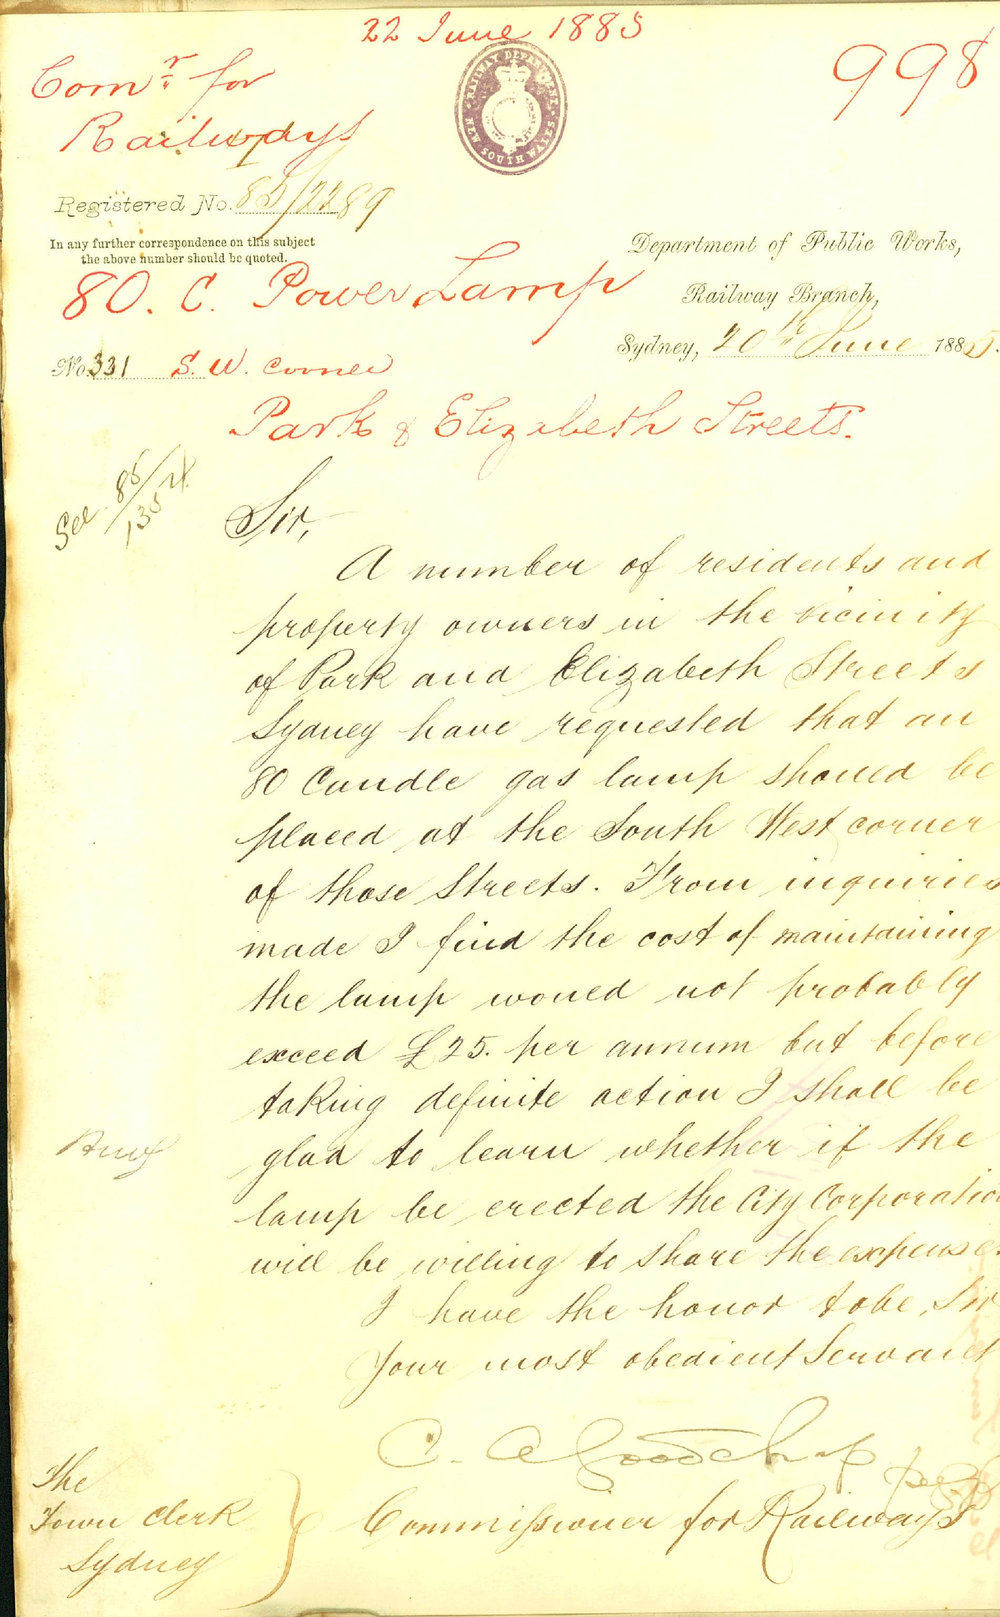 22 June 1885
998
Comr for
Railways
RAILWAY DEPARTMENT
NEW SOUTH WALES
Registered No. 85/2289
In any further correspondence on this subject
the above number should be quoted.
Department of Public Works,
Railway Branch,
Sydney, 20th June 1885.
80. C. Power Lamp
No. 331 S. W. corner
Park & Elizabeth Streets.
See 85/
Sir,
A number of residents and
property owners in the vicinity
of Park and Elizabeth Streets
Sydney have requested that an
80 Candle gas lamp should be
placed at the South West corner
of those Streets. From inquiries
made I find the cost of maintaining
the lamp would not probably
exceed £25. per annum but before
taking definite action I shall be
glad to learn whether if the
lamp be erected the City Corporation
will be willing to share the expense.
I have the honor to be, Sir
Your most obedient Servant
C. A Goodchap
Commissioner for Railways
The
Town Clerk
Sydney